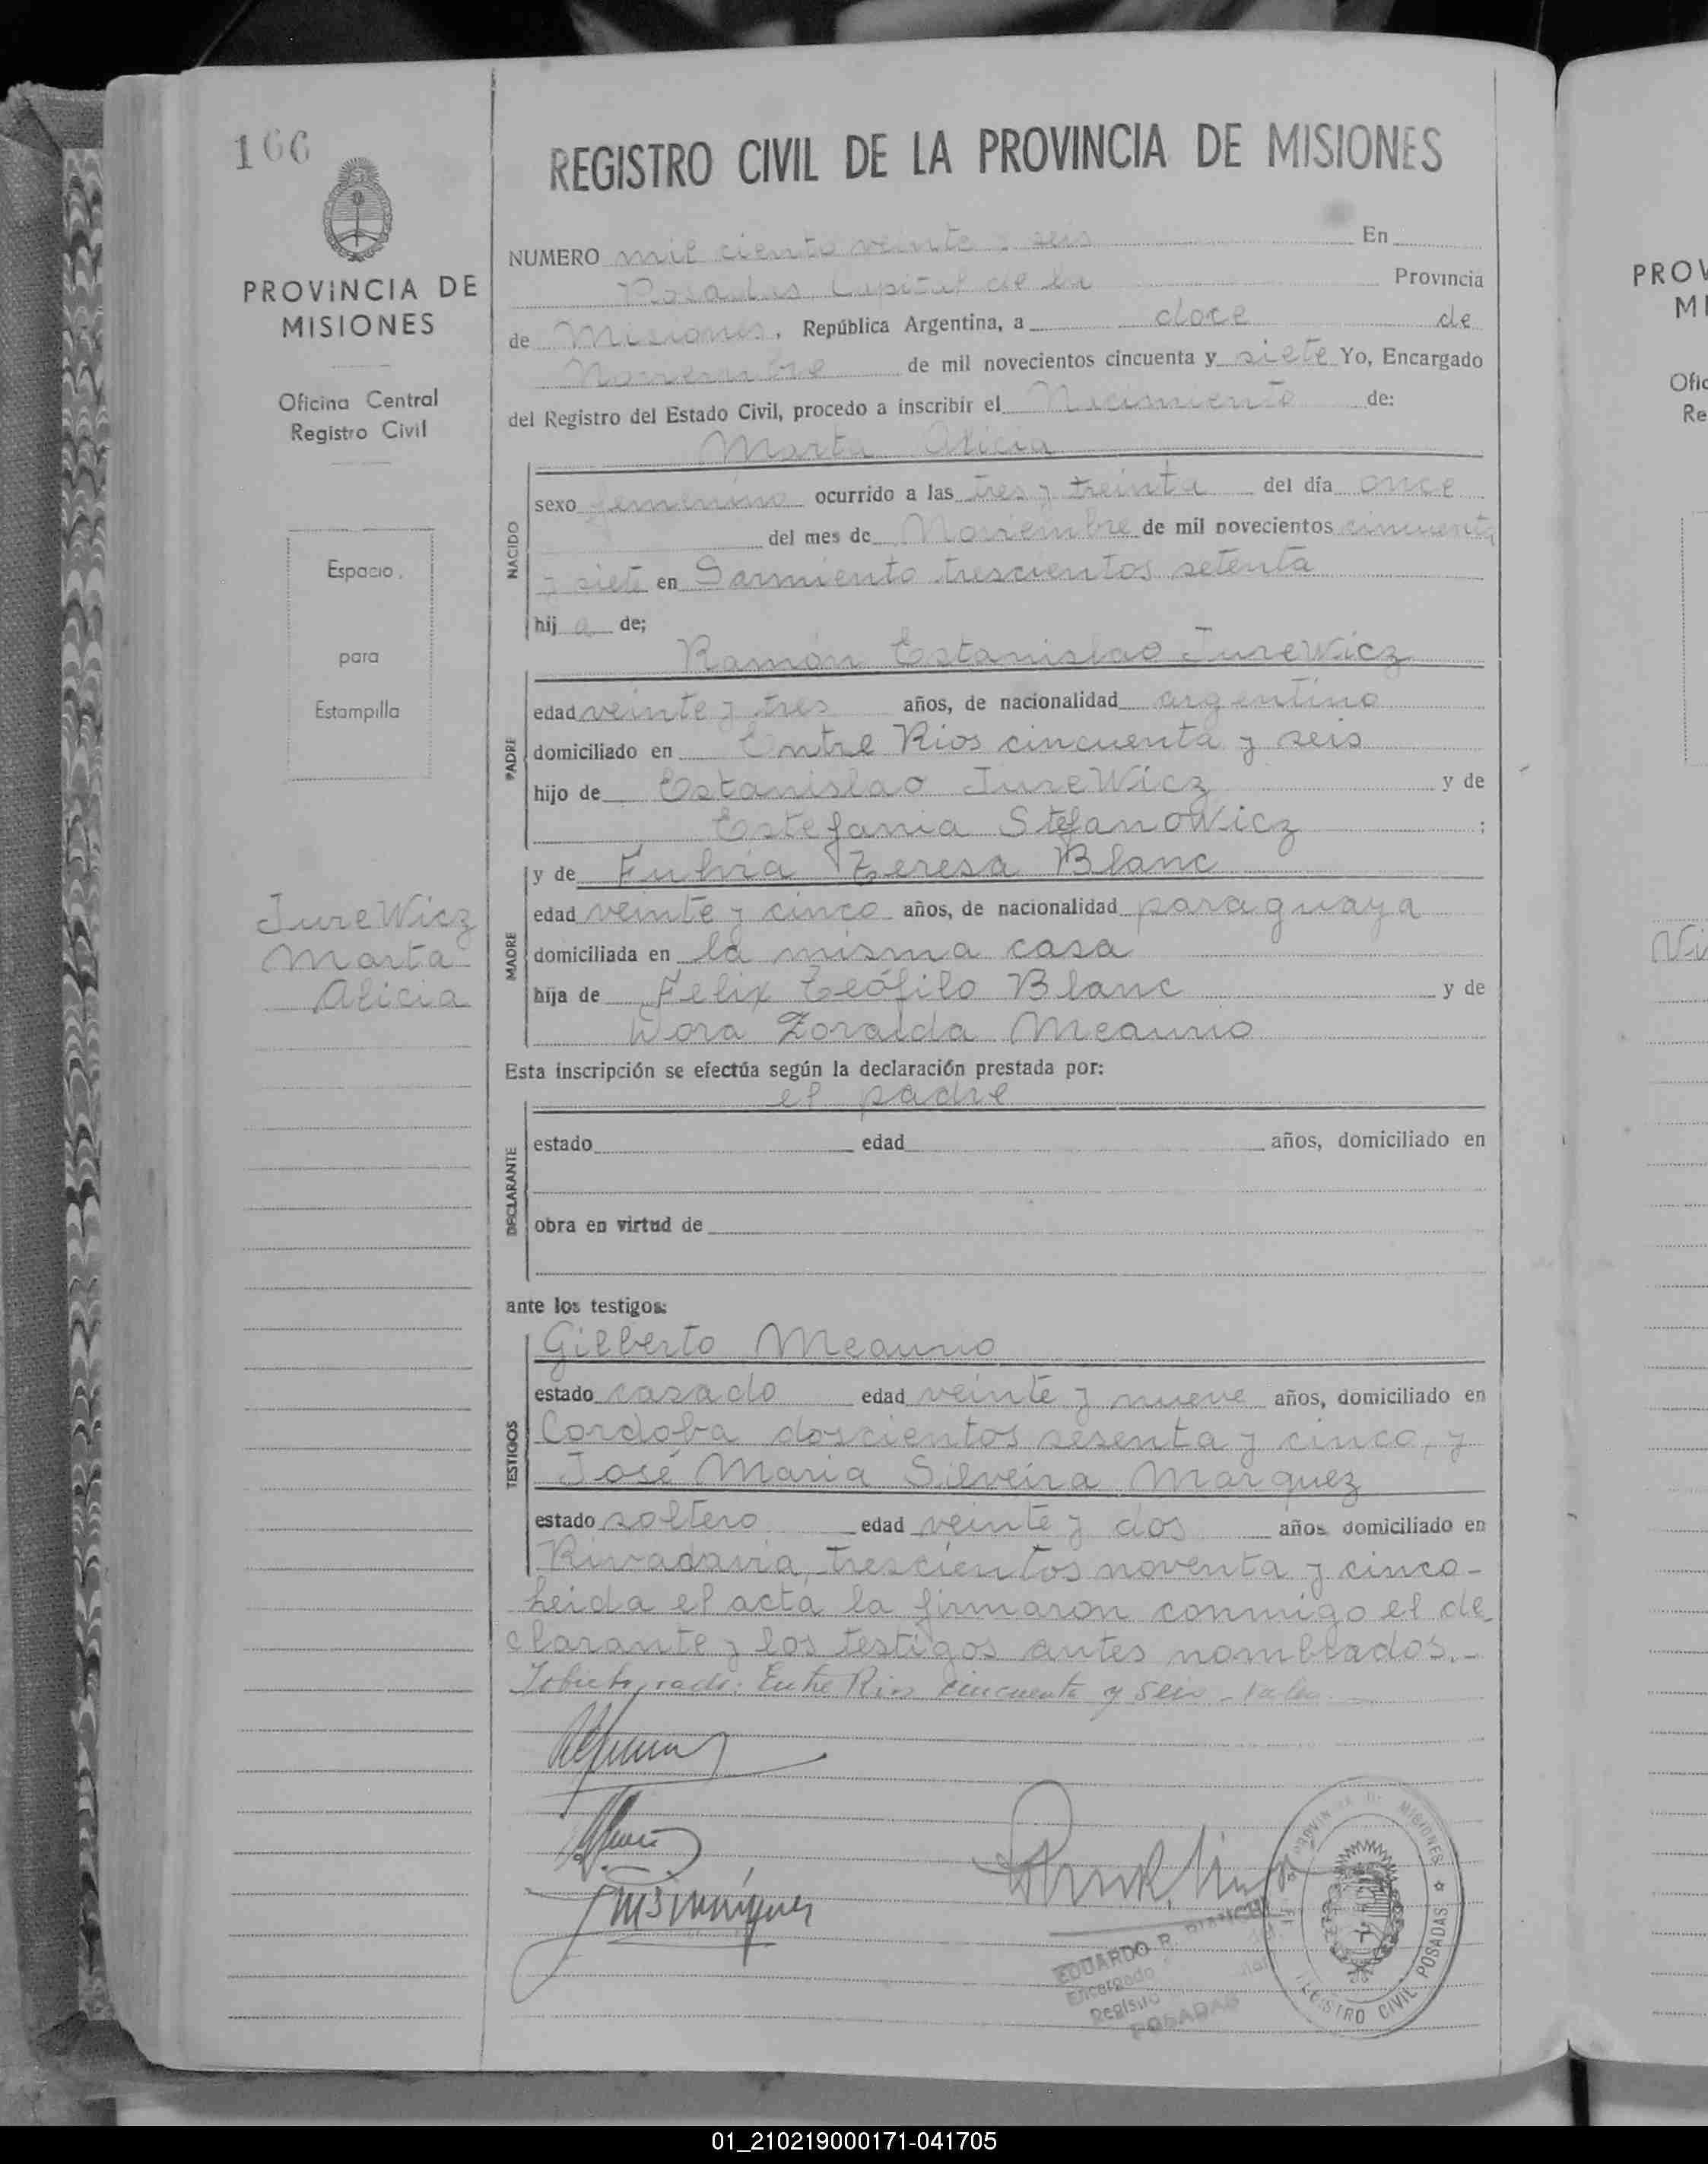 166
REGISTRO CIVIL DE LA PROVINCIA DE MISIONES
PROVINCIA DE
MISIONES
Oficina Central
Registro Civil
Espacio
para
Estampilla
JureWicz
Marta
Alicia
NUMERO mil ciento veinte y seis En
Posadas Capital de la Provincia
de Misiones, República Argentina, a doce de
Noviembre de mil novecientos cincuenta y siete Yo, Encargado
del Registro del Estado Civil, procedo a inscribir el Nacimiento de:
Marta Alicia
NACIDO
sexo femenino ocurrido a las tres y treinta del día once
del mes de Noviembre de mil novecientos cincuenta
y siete en Sarmiento trescientos setenta
hija de;
Ramón Estanislao JureWicz
PADRE
edad veinte y tres años, de nacionalidad argentino
domiciliado en Entre Rios cincuenta y seis
hijo de Estanislao JureWicz y de
Estefania StefanoWicz ;
y de Fulvia Teresa Blanc
MADRE
edad veinte y cinco años, de nacionalidad paraguaya
domiciliada en la misma casa
hija de Felix Teófilo Blanc y de
Dora Zoraida Meaurio
Esta inscripción se efectúa según la declaración prestada por:
el padre
DECLARANTE
estado edad años, domiciliado en
obra en virtud de
ante los testigos:
TESTIGOS
Gilberto Meaurio
estado casado edad veinte y nueve años, domiciliado en
Cordoba doscientos sesenta y cinco, y
José Maria Silveira Marquez
estado soltero edad veinte y dos años domiciliado en
Rivadavia, trescientos noventa y cinco-
Leida el acta la firmaron conmigo el de
clarante y los testigos antes nombrados.-
Entre Rios cincuenta y seis -
EDUARDO R.
Encargado
Registro
POSADAS
PROVINCIA DE MISIONES
REGISTRO CIVIL POSADAS
PROV
MI
Ofic
Re
Vi
01_210219000171-041705